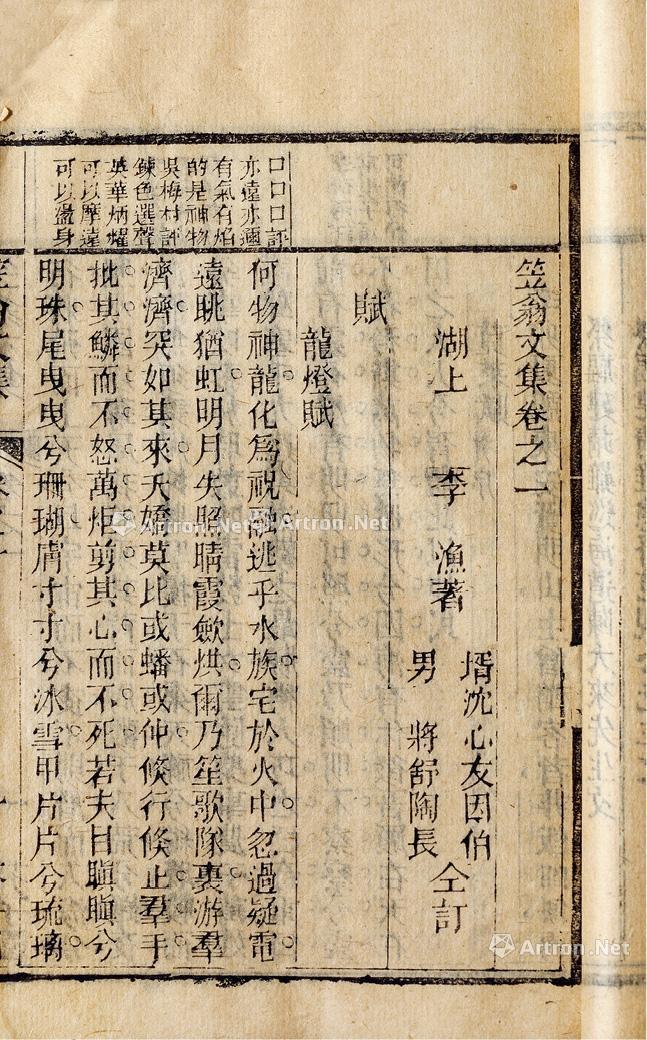 笠翁文集卷之一
湖上 李漁著
壻沈心友因伯
男 將舒陶長
仝訂
賦
龍燈賦
何物神龍化爲祝融逃乎水族宅於火中忽過疑電
遠眺猶虹明月失照晴霞歛烘爾乃笙歌隊裏游羣
濟濟突如其來夭嬌莫比或蟠或伸倐行倐止羣手
批其鱗而不怒萬炬剪其心而不死若夫目瞋瞋兮
明珠尾曳曳兮珊瑚膚寸寸兮冰雪甲片片兮琉璃
口口口評
亦遠亦邇
有氣有焰
的是神物
吳梅村評
鍊色選聲
英華炳燿
可以摩遠
可以盪身
Artron.Net
Artron.Net
Artron.Net